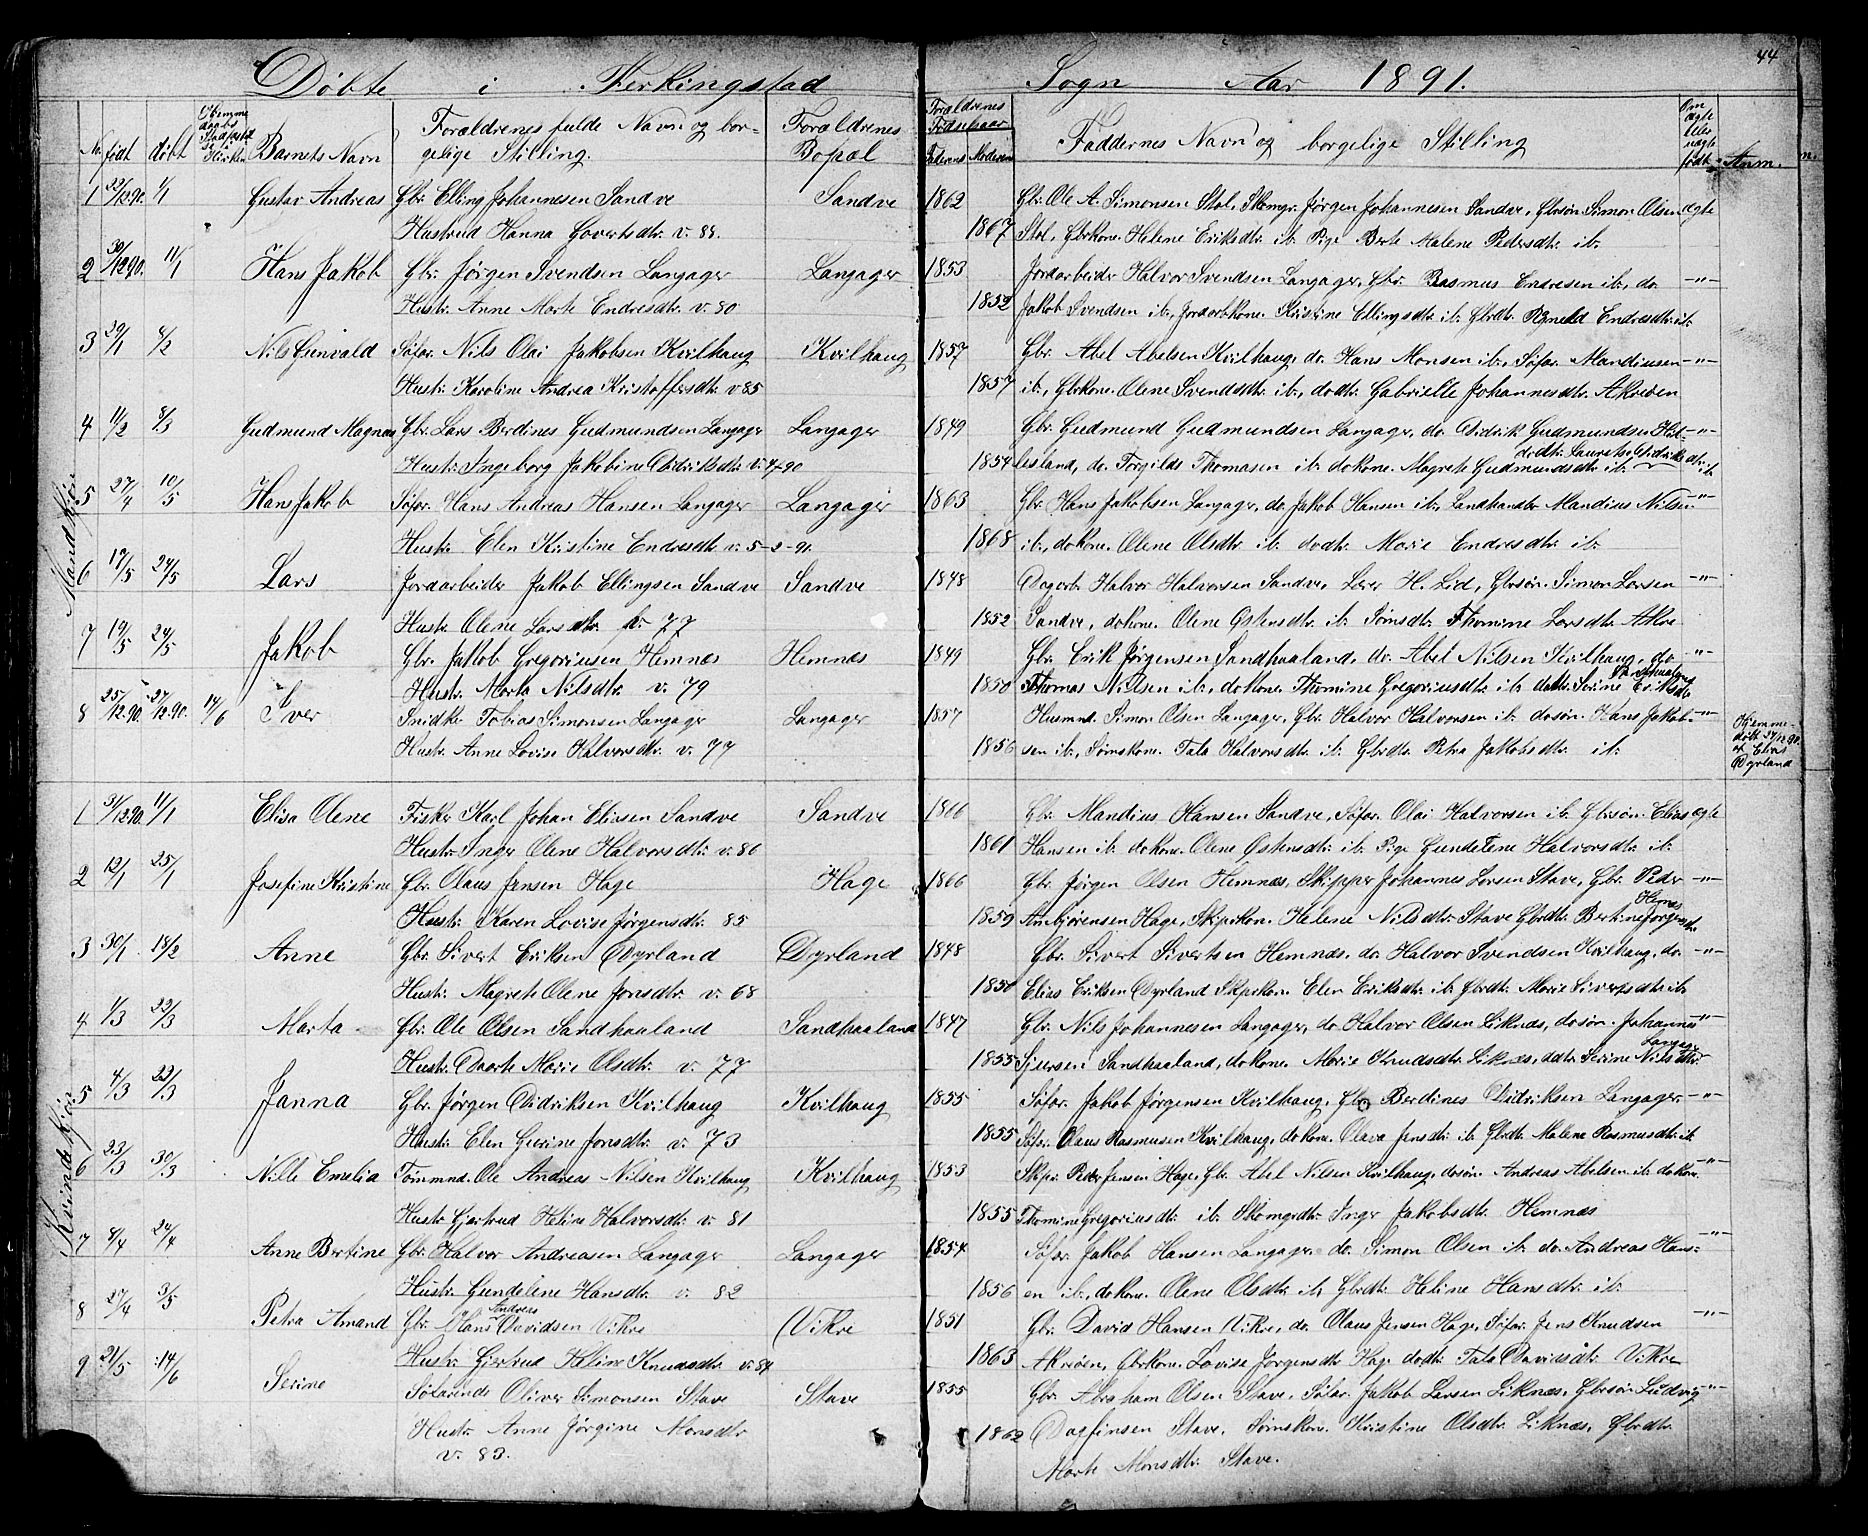 44
Døbte i Ferkingstad Sogn Aar 1891.
No. født døbt Barnets Navn Forældrenes fulde Navn og bor-
gelige Stilling.
Forældrenes
Bopæl
Forældrenes
Fødselsaar
Faderens Moderens
Faddernes Navn og borgelige Stilling
Om
ægte
eller
uægte
født
Anm.
Mandkjøn
1 22/12 90. 1/1 Gustav Andreas Gbr. Elling Johannesen Sandve Sandve 1862 Gbr. Ole A. Simonsen Stol, Skomgr. Jørgen Johannesen Sandve, Gbrsøn Simon Olsen ægte
Hustrud Hanna Govertsdtr. v. 88. 1867 Stol, Gbrkone. Helene Eriksdtr. ib. Pige Berte Malene Pedersdtr. ib.
2 30/12 90. 11/1 Hans Jakob Gbr. Jørgen Svendsen Langager Langager 1853 Jordarbeider Halvor Svendsen Langager, Gbr. Rasmus Endresen ib., do. -"-
Hustr. Anne Marte Endresdtr. v. 80 1852 Jakob Svendsen ib., Jordarbkone. Kristine Ellingsdtr. ib. Gbrdtr. Endresdtr. ib.
3 29/1 8/2 Nils Gunvald Søfar. Nils Olai Jakobsen Kvilhaug Kvilhaug 1857 Gbr. Abel Abelsen Kvilhaug, do. Hans Monsen ib., Søfar. Mandiusen -"-
Hustr. Karoline Andrea Kristoffersdtr. v. 85 1857 ib., Gbrkone. Olene Svendsdtr. ib., dodtr. Gabrielle Johannesdtr. Akreøen
4 11/2 8/3 Gudmund Magnas Gbr. Lars Berdines Gudmundsen Langager Langager 1849 Gbr. Gudmund Gudmundsen Langager, do. Didrik Gudmundsen Hil- -"-
Hustr. Ingeborg Jakobine Didriksdtr. v. 4-90 1854 lesland, do. Torgilds Thomasen ib. dokone. Magrete Gudmundsdtr. ib. dodtr. Lauretse Didriksdtr. ib.
5 27/4 10/5 Hans Jakob Søfar. Hans Andreas Hansen Langager Langager 1863 Gbr. Hans Jakobsen Langager, do. Jakob Hansen ib., Landhandlr Mandius Nilsen -"-
Hustr. Elen Kristine Endresdtr. v. 5-2-91. 1868 ib., dokone. Olene Olsdtr. ib. dodtr. Marie Endresdtr. ib.
6 17/5 24/5 Lars Jordarbeider Jakob Ellingsen Sandve Sandve 1848 Dagarb. Halvor Halvorsen Sandve, Lærer H. Lid, Gbrsøn. Simon Larsen -"-
Hustr. Olene Larsdtr. v. 77 1852 Sandve, dokone. Olene Østensdtr. ib. Tømsdtr. Thomine Larsdtr. Akre
7 19/5 24/5 Jakob Gbr. Jakob Gregoriusen Hemnes Hemnes 1849 Gbr. Erik Jørgensen Sandhaaland, do. Abel Nilsen Kvilhaug, do. -"-
Hustr. Marta Nilsdtr. v. 79 1850 Thomas Nilsen ib., dokone. Thomine Gregoriusdtr. ib. dodtr. Serine Eriksdtr. Sandhaaland
8 25/12 90. 27/12 90. 14/6 Iver Snidke Tobias Simonsen Langager Langager 1857 Husmnd. Simon Olsen Langager, Gbr. Halvor Halvorsen ib. dosøn. Hans Jakob- -"-
Hustr. Anne Lovise Halvorsdtr. v. 77 1856 sen ib., Tømskone. Tala Halvorsdtr. ib. Gbrdtr. Petra Jakobsdtr. ib.
Hjemme-
døbt 27/12 90.
af Elias
Dyrland
Kvindekjøn
1 31/12 90. 11/1 Elisa Olene Fisker Karl Johan Eliasen Sandve Sandve 1866 Gbr. Mandius Hansen Sandve, Søfar. Olai Halvorsen ib. Gbrsøn. Elias ægte
Hustr. Inger Olene Halvorsdtr. v. 86 1861 Hansen ib. dokone. Olene Østensdtr. ib. Pige Gundelene Halvorsdtr. ib.
2 12/1 25/1 Josefine Kristine Gbr. Olaus Jensen Hage Hage 1866 Gbr. Jørgen Olsen Hemnes, Skipper Johannes Larsen Stave, Gbr. Peder -"-
Hustr. Karen Lovise Jørgensdtr. 85 1859 Ambjørensen Hage, Skiprkon. Helene Nilsdtr. Stave Gbrdtr. Bertine Jørgensdtr. Hemnes
3 30/1 18/2 Anne Gbr. Sivert Eriksen Dyrland Dyrland 1848 Gbr. Sivert Sivertsen Hemnes, do. Halvor Svendsen Kvilhaug, do. -"-
Hustr. Magrete Olene Jonsdtr. v. 68 1850 Elias Eriksen Dyrland Skiprkon. Elen Eriksdtr. ib. Gbrdtr. Marie Sivertsdtr. ib.
4 1/3 22/3 Marta Gbr. Ole Olsen Sandhaaland Sandhaaland 1847 Gbr. Nils Johannesen Langager, do. Halvor Olsen Liknes, dosøn. Johannes -"-
Hustr. Daarte Marie Olsdtr. v. 77 1855 Sjursen Sandhaaland, dokone. Marie Knudsdtr. Liknes, dodtr. Serine Nilsdtr. Langager
5 4/3 22/3 Janna Gbr. Jørgen Didriksen Kvilhaug Kvilhaug 1855 Søfar. Jakob Jørgensen Kvilhaug, Gbr. Berdines Didriksen Langager -"-
Hustr. Elen Gurine Jonsdtr. v. 73 1855 Søfar. Olaus Rasmusen Kvilhaug, dokone. Olava Jensdtr. ib. Gbrdtr. Malene Rasmusdtr. ib.
6 23/3 30/3 Nille Emelia Tømmnd. Ole Andreas Nilsen Kvilhaug Kvilhaug 1853 Skipr. Peder Jensen Hage, Gbr. Abel Nilsen Kvilhaug, dosøn. Andreas Abelsen ib. dokone. -"-
Hustr. Gjertrud Heline Halvorsdtr. v. 81 1855 Thomine Gregoriusdtr. ib. Skomgrdtr. Inger Jakobsdtr. Hemnes
7 8/4 24/4 Anne Bertine Gbr. Halvor Andreasen Langager Langager 1854 Søfar. Jakob Hansen Langager. do. Simon Olsen ib. do. Andreas Hans- -"-
Hustr. Gundelene Hansdtr. v. 82 1856 en ib., dokone. Olene Olsdtr. ib. Gbrdtr. Heline Hansdtr. ib.
8 27/4 3/5 Petra Amand Gbr. Hans Andreas Davidsen Vikre Vikre 1851 Gbr. David Hansen Vikre, do. Olaus Jensen Hage, Søfar. Jens Knudsen -"-
Hustr. Gjertrud Heline Knudsdtr. v. 84 1863 Akreøen, Gbrkone. Lovise Jørgensdtr. Hage dodtr. Tala Davidsdtr. Vikre
9 21/5 14/6 Serine Søfarende Oliver Simonsen Stave Stave 1855 Gbr. Abraham Olsen Stave, Søfar. Jakob Larsen Liknes, Gbrsøn Ludvig -"-
Hustr. Anne Jørgine Monsdtr. 1862 Dagfinsen Stave, Tømskone. Kristine Olsdtr. Liknes, Gbrdtr.
v. 83. Marte Monsdtr. Stave.